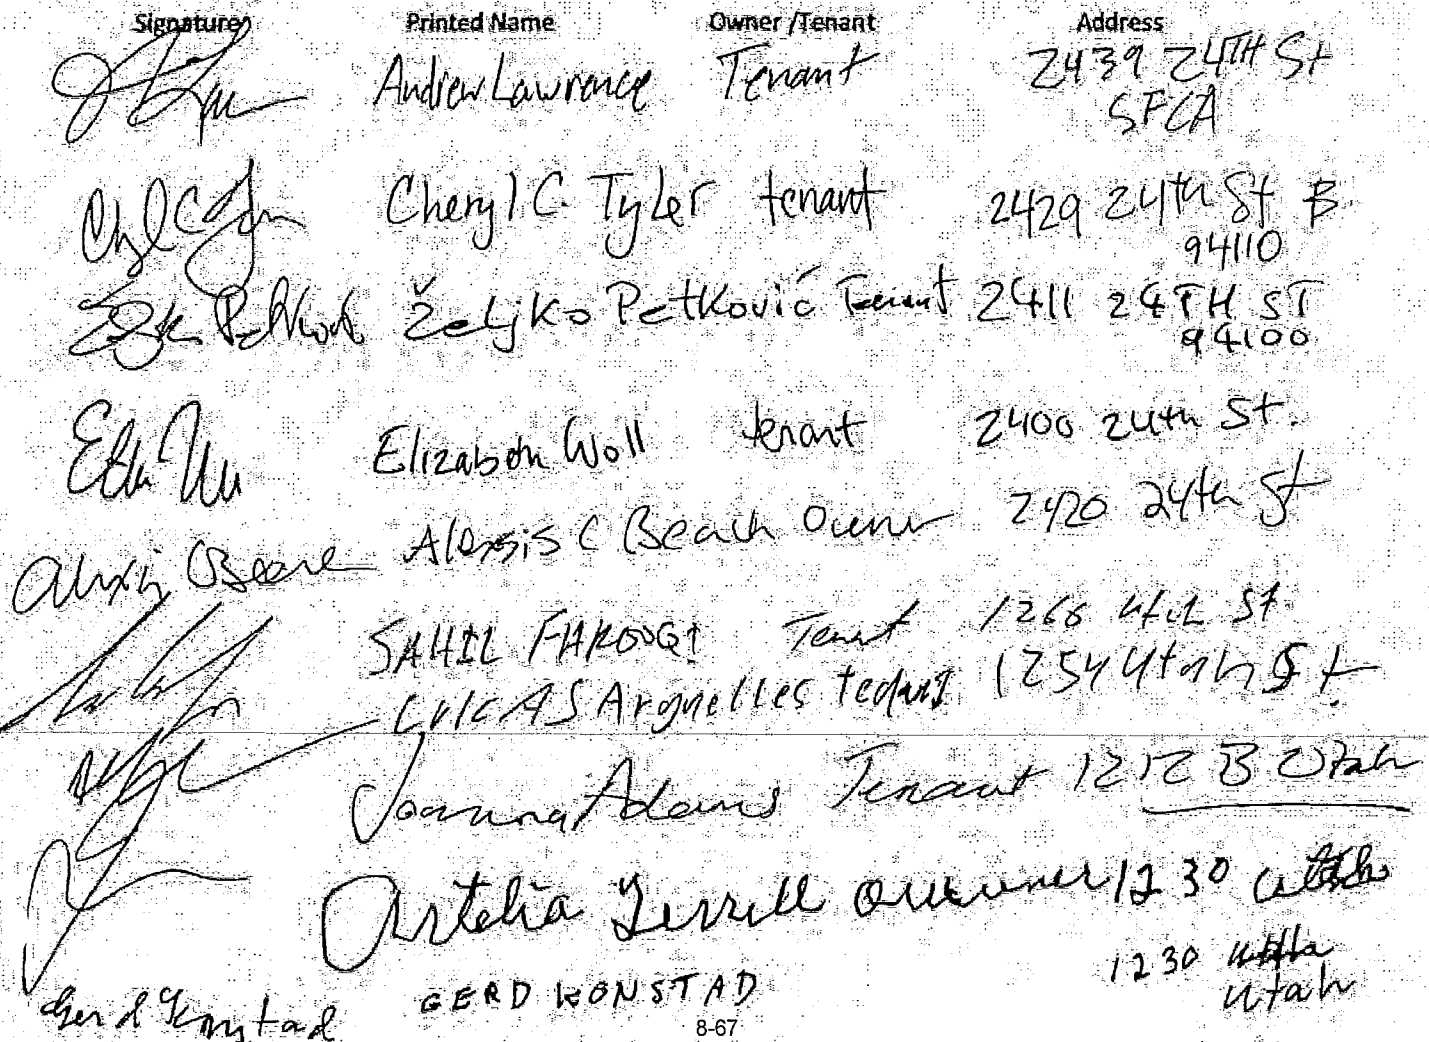 Signature Printed Name Owner /Tenant Address
Andrew Lawrence Tenant 2439 24TH St
SFCA
Cheryl C. Tyler tenant 2429 24th St B
94110
Željko Petković Tenant 2411 24TH ST
94100
Elizabeth Woll tenant 2400 24th St.
Alexis C Beach Owner 2420 24th St
SAHIL FAROOQI Tenant 1266 Utah St
LUKAS Arguelles 1254 Utah St.
Joanna Adams Tenant 1212 B Utah
Artelia Terrell 1230
1230
Utah
Gerd Konstad GERD KONSTAD
8-67